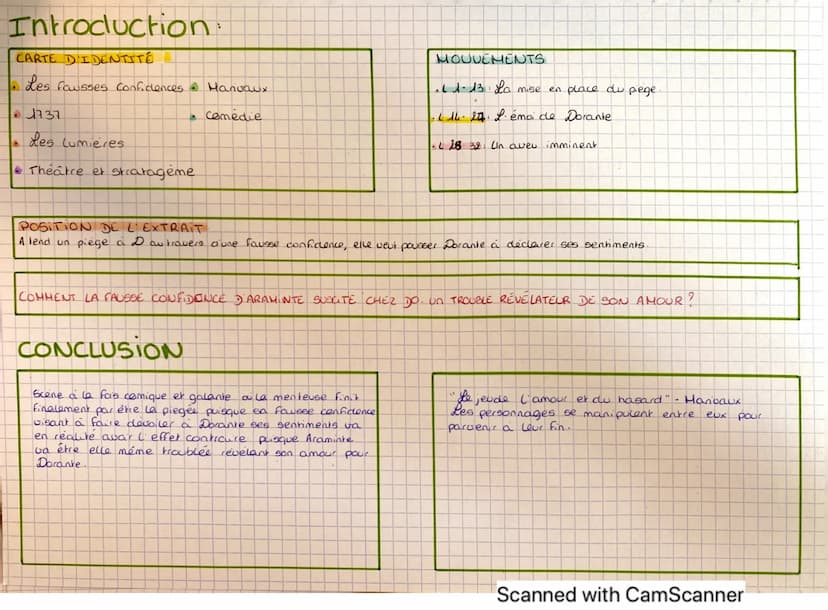 Introduction:
CARTE D'IDENTITÉ
Les fausses Confidences
Marivaux
1737
Comédie
Les Lumières
Théâtre et stratagème
MOUVEMENTS
L 1-13: La mise en place du piège
L 14-27: L'émoi de Dorante
L 28-32: Un aveu imminent
POSITION DE L'EXTRAIT
A tend un piège à D au travers d'une fausse confidence, elle veut pousser Dorante à déclarer ses sentiments.
COMMENT LA FAUSSE CONFIDENCE D'ARAMINTE SUSCITE CHEZ DO. UN TROUBLE RÉVÉLATEUR DE SON AMOUR?
CONCLUSION
Scène à la fois comique et galante où la menteuse finit
finalement par être la piégée puisque sa fausse confidence
visant à faire dévoiler à Dorante ses sentiments va
en réalité avoir l'effet contraire puisque Araminte
va être elle même troublée révélant son amour pour
Dorante.
"Le jeu de l'amour et du hasard" - Marivaux
Les personnages se manipulent entre eux pour
parvenir à leur fin.
Scanned with CamScanner